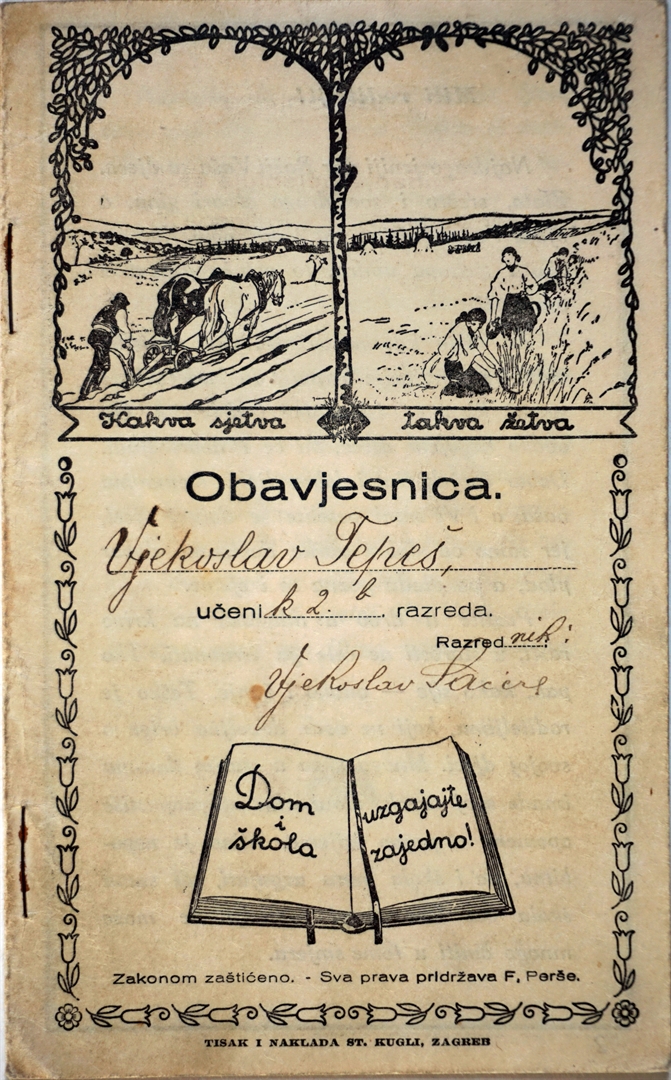 Kakva sjetva takva žetva
Obavjesnica.
Vjekoslav Tepeš,
učenik 2. b razreda.
Razrednik:
Vjekoslav
Dom
i
škola
uzgajajte
zajedno!
Zakonom zaštićeno. - Sva prava pridržava F. Perše.
TISAK I NAKLADA ST. KUGLI, ZAGREB